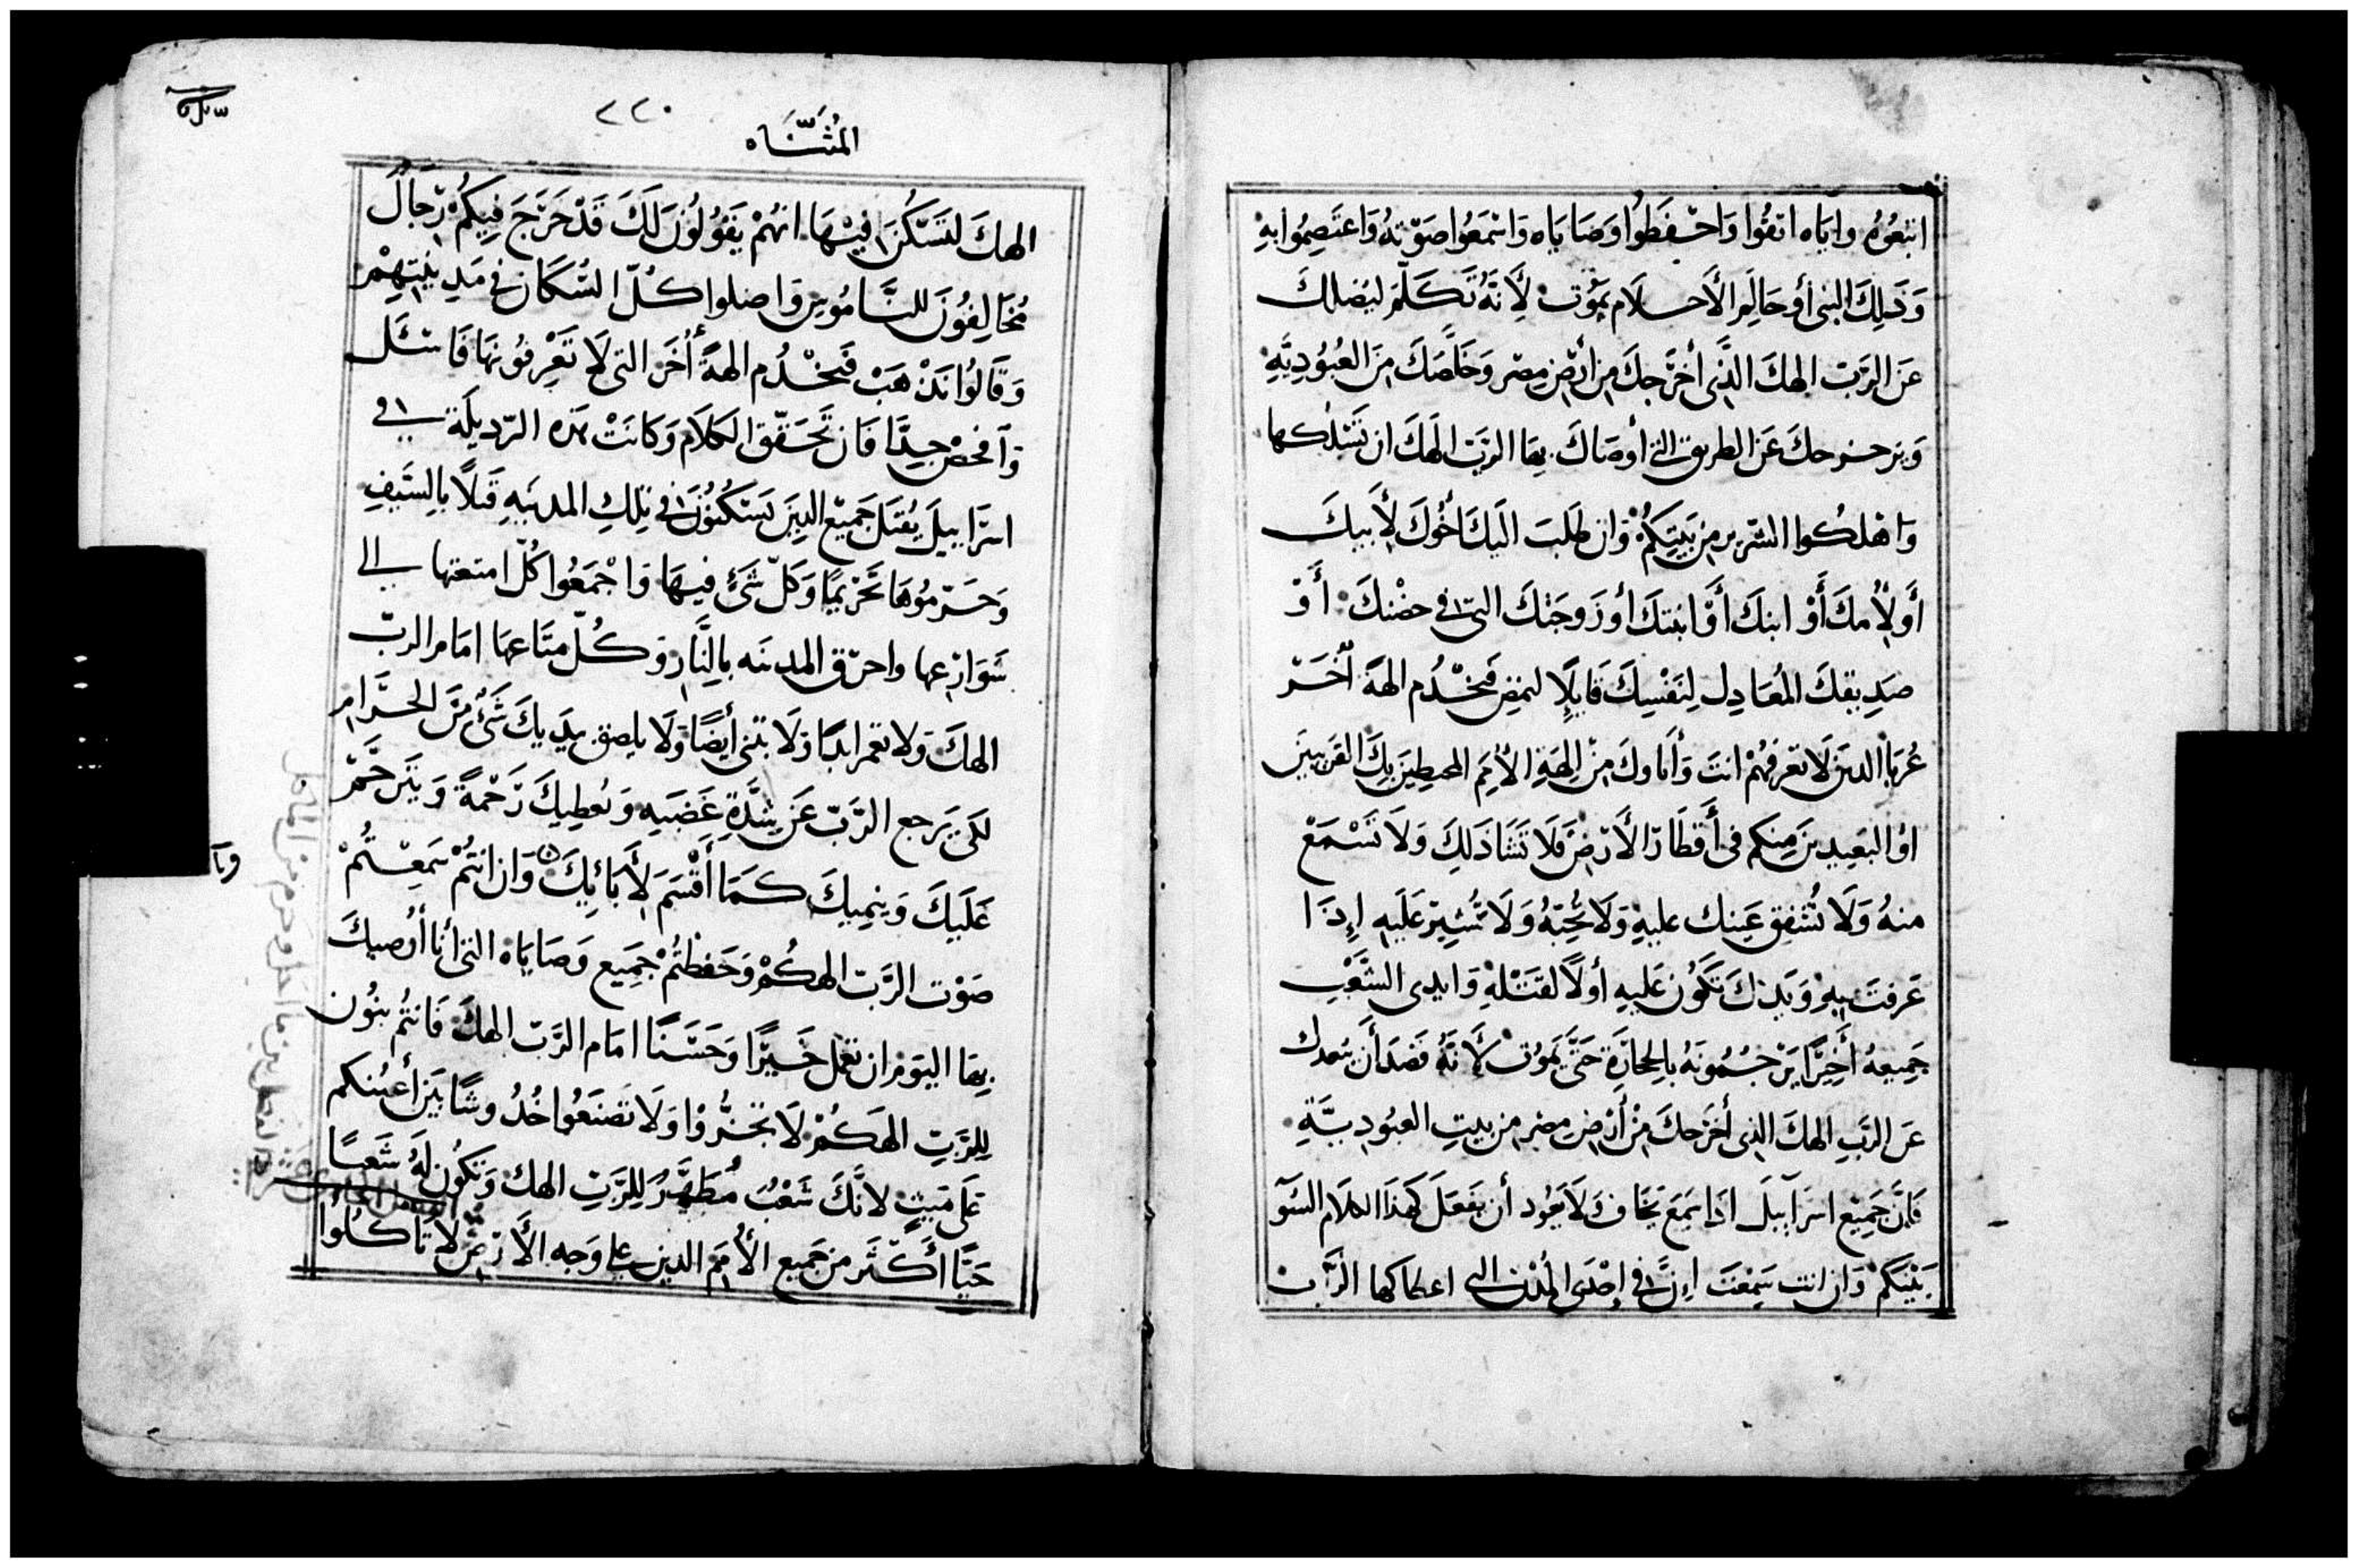 اتبعُوهُ وايَاه اتقُوا وَاحْفَظُوا وَصَايَاه وَاسْمَعُوا صَوْتهُ وَاعتَصِمُوا بهِ
وَذَلِكَ النبى أو حَالِم الأحلَام يَمُوت لأِنَّهُ تَكَلّمَ ليُضلك
عَن الرَّبّ الهكَ الذَّى أخرَجكَ مِن أرْض مِصْر وَخَلَّصَكَ مِنَ العُبُودِيَّهِ
وَيزحزحكَ عَن الطريق التى أوصَاكَ بهَا الرَّبّ الَهَكَ ان تَسْلُكها
وَاهْلكُوا الشرير مِن بَيْتِكُمْ وَان طَلَبَ اليكَ اخُوكَ لأَبيكَ
أَو لأُمكَ أَوْ ابنكَ أَوْ ابنتكَ أو زَوجَتكَ التى فى حضْنكَ أَوْ
صَدِيقكَ المُعَادِل لِنَفْسِكَ قَايلًا لنمضِ فَنخْدُم الهةً أُخَرْ
غُربَا الدين لَا تعْرفهُمْ انتَ وَأَباوكَ مِنْ الِهَةِ الأُمَم المحيطِينَ بِكَ القَريبينَ
اوُ البَعِيدينَ مِنكم فى أَقطَار الأَرْضِ فَلَا تَشَا ذَلكَ وَلَا تَسْمَعْ
منهُ وَلَا تُشْفِق عَينك عليهِ وَلَا تُحِبّهُ وَلَا تُشِيرْ عَلَيهِ إِذَا
عَرفتَ بهِ وَيَدكَ تَكُون عَليهِ أولًا لقَتْلهِ وَايدِى الشَّعْب
جَمِيعهُ أَخِيرًا يَرْجُمُونَهُ بالحِجَارَةِ حَتَّى يَمُوت لأَنَّهُ قصَدَ أَن يبعدك
عَن الرَّبِ الهكَ الذى أخرَجكَ مِنْ أَرْضِ مِصْر مِن بيتِ العبُودِيَّةِ
فَإنَّ جَمِيْع اسرَآيِيلَ اذَا سَمِعَ يَخَاف وَلَا يَعُود أن يفعَلَ كَهَذَا الكلَام السُوٓ
بَيْنِكمْ وَان انت سَمِعْتَ إِنَّ فى إحْدَى المُدُن التى اعطاكها الرَّب
المُثَنَّاه
٢٢٠
الهكَ لتَسْكُنَ فيْهَا انهُمْ يَقُولُونَ لَكَ قَدْ خَرَجَ فِيكُمْ رِجَالٌ
مُخَالِفُونَ للنَّامُوسِ وَاضلوا كُلّ السُّكَان فى مَدِينتهِمْ
وَقَالُوا نَذْهَبْ فَنخْدُم الهةً أُخَر التى لَا تَعْرفونهَا فَاسْئَل
وَافحَصْ جيدًا فَان تَحَقّقَ الكلَام وَكَانَتْ هَذه الرّديلَة فى
اسرَاييلَ يُقتَل جَمِيْع الدِينَ يَسْكُنُونَ فى تلكِ المدينَهِ قَتلًا بِالسَيفِ
وَحَرّمُوهَا تَحْريمًا وَكلّ شَئ فيهَا وَاجْمَعُوا كُلّ امتعتها الى
شَوَارعهَا واحرق المدينه بالِنَّار وَكُلّ متَاعهَا امَام الربّ
الهكَ وَلا تعمر ابدًا وَلَا تبنى أيضًا وَلَا يلصق بيَديكَ شَئ مِنَ الحَرَام
لكَى يَرجع الرَّبّ عَن شِدَّةِ غَضَبِهِ وَيُعطِيكَ رَحْمةً وَيَترَحَّمْ
عَلَيكَ وَينمِيكَ كَمَا أَقْسَمَ لأَبَائِكَ وَان انتُمْ سَمِعْتُمْ
صَوْت الرَّبّ الهكُمْ وَحَفظتُمْ جَمِيع وَصَايَاه التى أنا أُوصيكَ
بهَا اليَومَ ان تعمل خَيْرًا وَحَسَنًا امَام الرَّبّ الهكَ فَانتُم بنُون
لِلرَّبِّ الهَكُمْ لَا تجزُّوا وَلَا تَصْنَعُوا خُدُوشًا بَيْن أعينكم
عَلَى مَيتٍ لانَّكَ شَعْبٌ مُطَهَّرٌ لِلرَّبِّ الهك وَتَكُون لَهُ شَعبًا
حَيًّا أَكْثَر مِن جَمِيع الأُمَم الدين على وَجه الأَرْضِ لَا تَاكلُوا